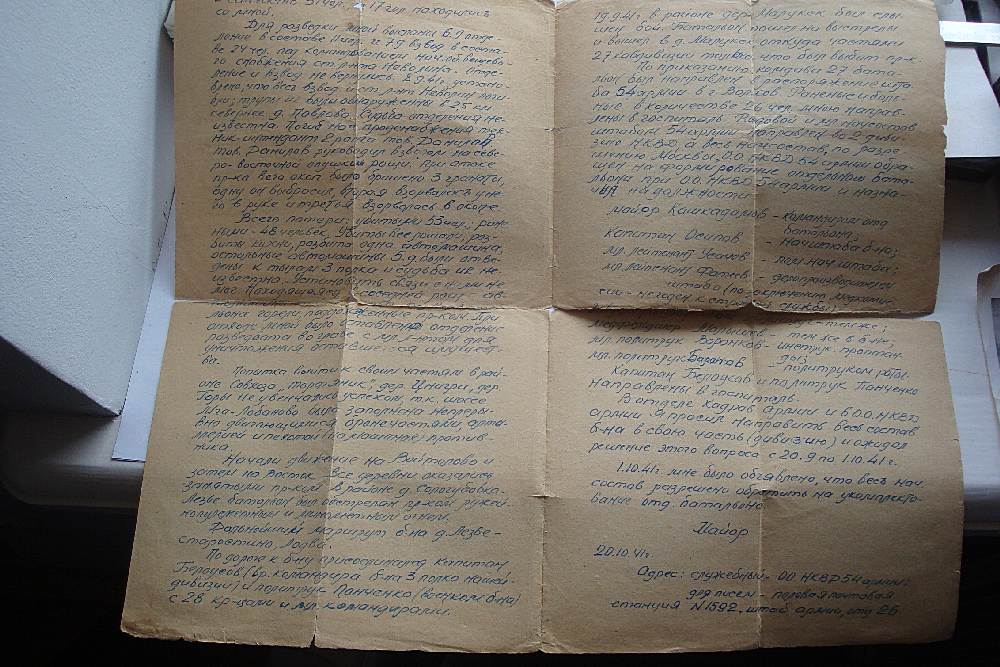 со мной.
Для разведки мной высланы 6.9 отделение
в составе 11 чел. и 7.9 взвод в составе
24 чел. под командованием нач-ка вещевого
снабжения ст. л-та Неверина. Отделение
и взвод не вернулись. 2.9.41г. установлено,
что весь взвод и ст. л-т Неверин
трупы их были обнаружены в 2,5 км
севернее д. Павлово. Судьба отделения неизвестна.
Погиб нач. продснабжения техник
интендант 2 ранга тов. Данилов.
Тов. Данилов руководил взводом на северо-восточной
опушке рощи. При атаке
пр-ка в его окоп было брошено 3 гранаты,
одну он выбросил, вторая взорвалась у него
в руке и третья взорвалась в окопе.
Всего потери: убитыми 53 чел.; ранеными
- 48 человек. Убиты все лошади, разбиты
кухни, разбита одна автомашина,
остальные автомашины 5.9. были отведены
к тылам 3 полка и судьба их неизвестна.
Установить связи с ними не
мог. Находящаяся в соседней роще
отходе мной было оставлено отделение
разведчиков во главе с мл. л-том для
уничтожения оставшегося имущества.
Попытка выйти к своим частям в районе
Совхоза "Торфяник", дер. Цнигри, дер.
Горы не увенчалась успехом, т.к. шоссе
Мга-Лобаново было заполнено непрерывно
двигающимися бронечастями, артиллерией
и пехотой (на машинах) противника.
Начали движение на Войтолово и
затем на Восток. Все деревни оказались
занятыми пр-ком. В районе д. Сологубовка-
Лезье батальон был обстрелян пр-ком ружейно-пулеметным
и минометным огнем.
Дальнейший маршрут б-на д. Лезье-
Старостино, Лодва.
По дороге к б-ну присоединился капитан
Белоусов (вр. командира б-на 3 полка нашей
дивизии) и политрук Панченко (военком б-на)
с 28 кр-цами и мл. командирами.
19.9.41г. в районе дер. Малукск был слышен
бой. Батальон пошел на выстрелы
и вышел в д. Малукск, откуда частями
27 кав дивизии только что был выбит пр-к.
По приказанию комдива 27 батальон
был направлен в распоряжение штаба
54 армии в г. Волхов. Раненые и больные
в количестве 26 чел. мною направлены
в госпиталь. Рядовой и мл. начсостав
штабом 54 армии направлен во 2 дивизию
НКВД, а весь нач-состав, по разрешению
Москвы, О.О. НКВД 54 армии обращен
на формирование отдельного батальона
при О.О. НКВД 54 армии и назначен
на должности:
майор Кашкадамов - командиром отд.
батальона;
капитан Осипов - нач. штаба б-на;
мл. лейтенант Усачев - пом нач. штаба;
мл. лейтенант Фатеев - делопроизводителем
штаба
тем же б-не;
мл. политрук Воронков - инструк. пропаганды;
мл. политрук Баратов - политруком роты.
Капитан Белоусов и политрук Панченко
направлены в госпиталь.
В отделе Кадров Армии и в О.О. НКВД
армии я просил направить весь состав
б-на в свою часть (дивизию) и ожидал
решение этого вопроса с 20.9 по 1.10.41г.
1.10.41г. мне было объявлено, что весь нач
состав разрешено обратить на укомплектование
отд. батальона.
Майор
20.10.41г.
Адрес: служебный - ОО НКВД 54 армии;
для писем - полевая почтовая
станция N 1592, штаб армии, отд 26